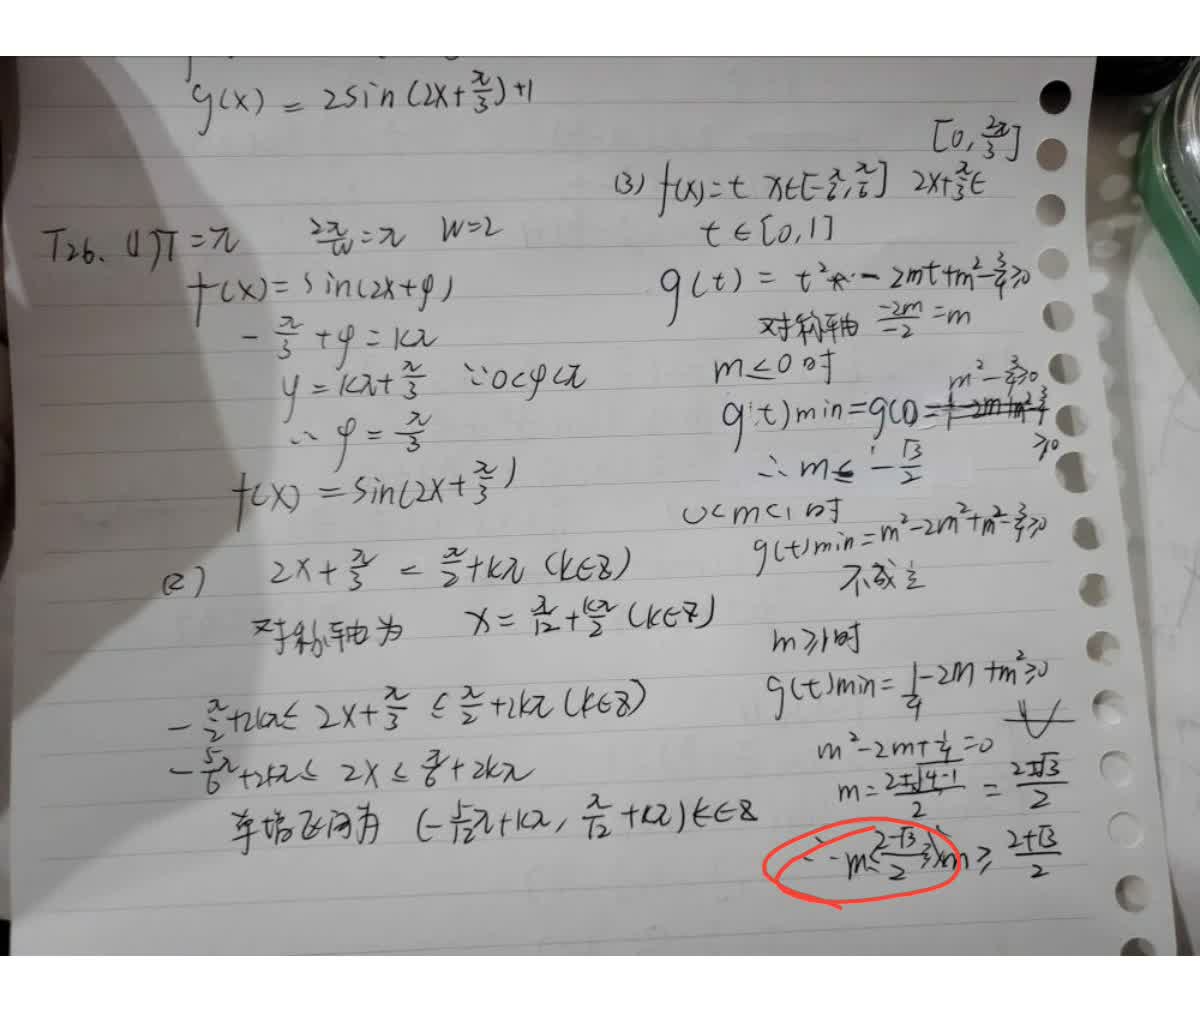 g(x) = 2sin(2x+π/3)+1
T26. (1) T=π 2π/w=π w=2
f(x)=sin(2x+φ)
-π/3+φ=kπ
y=kπ+π/3 ∵0<φ<π
∴ φ=π/3
f(x)=sin(2x+π/3)
(2) 2x+π/3=π/2+kπ (k∈Z)
对称轴为 x=π/12+kπ/2 (k∈Z)
-π/2+2kπ≤2x+π/3≤π/2+2kπ (k∈Z)
-5/6π+2kπ≤2x≤π/6+2kπ
单增区间为 (-5/12π+kπ, π/12+kπ) k∈Z
[0, 2π/3]
(3) f(x)=t x∈[-π/6, π/6] 2x+π/3∈
t∈[0,1]
g(t)=t²-2mt+m²-3/4≥0
对称轴 -2m/-2=m
m≤0时
m²-3/4≥0
g(t)min=g(
≥0
∴m≤-√3/2
0<m<1时
g(t)min=m²-2m²+m²-3/4≥0
不成立
m≥1时
g(t)min=1/4-2m+m²≥0
m²-2m+1/4=0
m=2±√4-1/2=2±√3/2
∴m≤2-√3/2 m≥2+√3/2